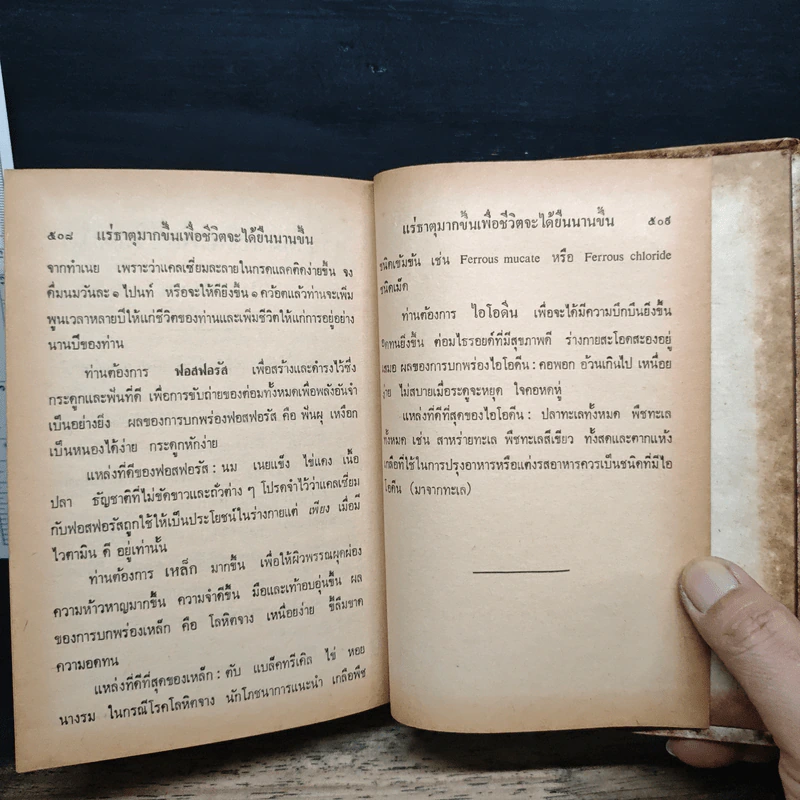 ๕๐๘ แร่ธาตุมากขึ้นเพื่อชีวิตจะได้ยืนนานขึ้น
จากทำเนย เพราะว่าแคลเซี่ยมละลายในกรดแลคติคง่ายขึ้น จง
ดื่มนมวันละ ๑ ไปนท์ หรือจะให้ดียิ่งขึ้น ๑ คว๊อตแล้วท่านจะเพิ่ม
พูนเวลาหลายปีให้แก่ชีวิตของท่านและเพิ่มชีวิตให้แก่การอยู่อย่าง
นานปีของท่าน
ท่านต้องการ ฟอสฟอรัส เพื่อสร้างและดำรงไว้ซึ่ง
กระดูกและฟันที่ดี เพื่อการขับถ่ายของต่อมทั้งหมดเพื่อพลังอันจำ
เป็นอย่างยิ่ง ผลของการบกพร่องฟอสฟอรัส คือ ฟันผุ เหงือก
เป็นหนองได้ง่าย กระดูกหักง่าย
แหล่งที่ดีของฟอสฟอรัส : นม เนยแข็ง ไข่แดง เนื้อ
ปลา ธัญชาติที่ไม่ขัดขาวและถั่วต่าง ๆ โปรดจำไว้ว่าแคลเซี่ยม
กับฟอสฟอรัสถูกใช้ให้เป็นประโยชน์ในร่างกายแต่ เพียง เมื่อมี
ไวตามิน ดี อยู่เท่านั้น
ท่านต้องการ เหล็ก มากขึ้น เพื่อให้ผิวพรรณผุดผ่อง
ความห้าวหาญมากขึ้น ความจำดีขึ้น มือและเท้าอบอุ่นขึ้น ผล
ของการบกพร่องเหล็ก คือ โลหิตจาง เหนื่อยง่าย ขี้ลืมขาด
ความอดทน
แหล่งที่ดีที่สุดของเหล็ก : ตับ แบล็คทรีเคิล ไข่ หอย
นางรม ในกรณีโรคโลหิตจาง นักโภชนาการแนะนำ เกลือพืช
แร่ธาตุมากขึ้นเพื่อชีวิตจะได้ยืนนานขึ้น ๕๐๙
ชนิดเข้มข้น เช่น Ferrous mucate หรือ Ferrous chloride
ชนิดเม็ด
ท่านต้องการ ไอโอดีน เพื่อจะได้มีความบึกบึนยิ่งขึ้น
อดทนยิ่งขึ้น ต่อมไธรอยด์ที่มีสุขภาพดี ร่างกายสะโอดสะองอยู่
เสมอ ผลของการบกพร่องไอโอดีน : คอพอก อ้วนเกินไป เหนื่อย
ง่าย ไม่สบายเมื่อระดูจะหยุด ใจคอหดหู่
แหล่งที่ดีที่สุดของไอโอดีน : ปลาทะเลทั้งหมด พืชทะเล
ทั้งหมด เช่น สาหร่ายทะเล พืชทะเลสีเขียว ทั้งสดและตากแห้ง
เกลือที่ใช้ในการปรุงอาหารหรือแต่งรสอาหารควรเป็นชนิดที่มีไอ
โอดีน (มาจากทะเล)